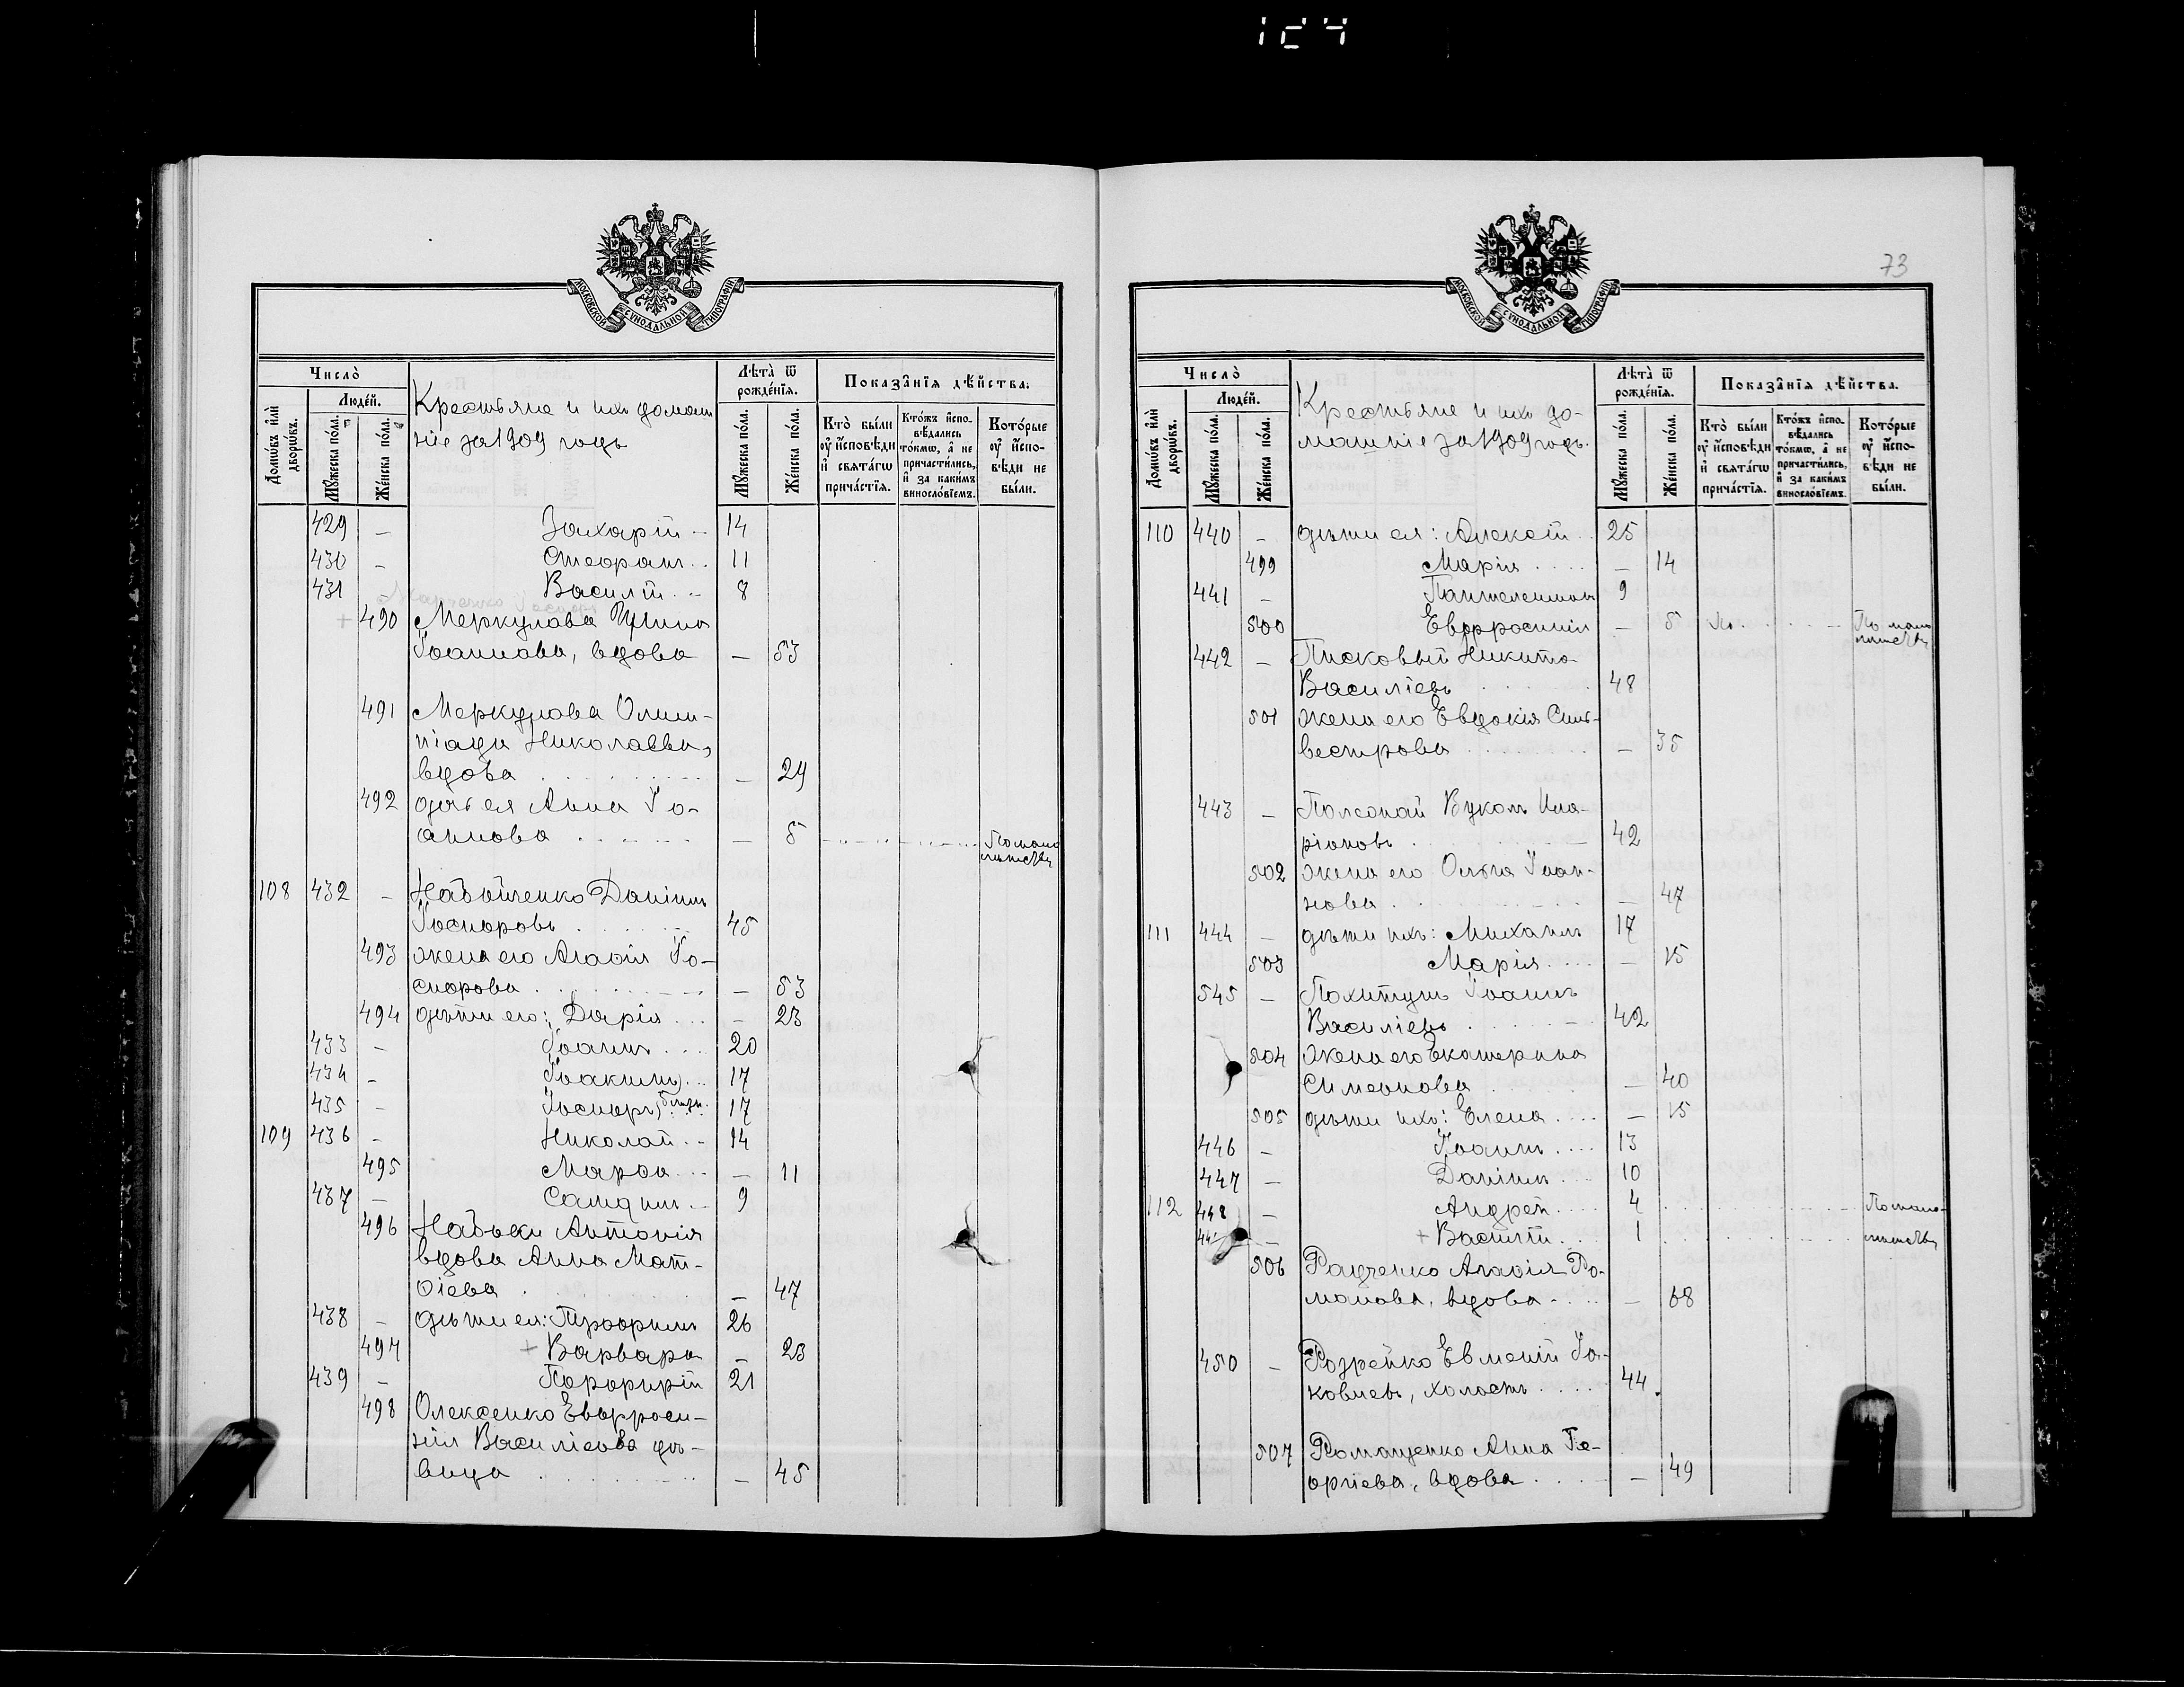 73
МОСКОВСКОЙ СѴНОДАЛЬНОЙ ТИПОГРАФІИ
Число̀
Лѣта̀ ѿ рожде́нїѧ.
Показа̑нїѧ дѣ́йства.
Люде́й.
Домѡ́въ и҆лѝ дворѡ́въ.
Мꙋ́жеска по́ла.
Же́нска по́ла.
Крестьяне и ихъ домаш
ніе за 1909 годъ
Мꙋ́жеска по́ла.
Же́нска по́ла.
Кто̀ бы́ли ᲂу҆ и҆́сповѣди и҆ свѧта́гѡ прича́стїѧ.
Кто́жъ и҆спо-вѣ́дались то́кмѡ, а҆ не причасти́лись, и҆ за каки́мъ виносло́вїемъ.
Кото́рые ᲂу҆ и҆́спо-вѣди не бы́ли.
429 – Захарій – 14
430 – Стефанъ .. 11
431 – Василій .. – 8
+ 490 Меркулова Ирина
Іоаннова, вдова – 53
491 Меркулова Олим-
піада Николаева,
вдова – 29
492 дочь ея Анна Іо-
аннова – 5 По мало
лѣтству
108 432 – Набойченко Даніилъ
Іосифовъ 45
493 жена его Агафія Іо-
сифова – 53
494 дѣти его: Дарія – 23
433 – Іоаннъ 20
434 – Іоакимъ) 17
435 – Іосифъ) близн. 17
109 436 – Николай 14
495 Марфа – 11
437 – Самуилъ 9
496 Набоки Антонія
вдова Анна Мат-
фіева – 47
438 – дѣти ея: Трофимъ 26
497 + Варвара – 23
439 – Порфирій 21
498 Олексенко Евфроси-
нія Василіева дѣ-
вица – 45
МОСКОВСКОЙ СѴНОДАЛЬНОЙ ТИПОГРАФІИ
Число̀
Лѣта̀ ѿ рожде́нїѧ.
Показа̑нїѧ дѣ́йства.
Люде́й.
Домѡ́въ и҆лѝ дворѡ́въ.
Мꙋ́жеска по́ла.
Же́нска по́ла.
Крестьяне и ихъ до-
машніе за 1909 годъ.
Мꙋ́жеска по́ла.
Же́нска по́ла.
Кто̀ бы́ли ᲂу҆ и҆́сповѣди и҆ свѧта́гѡ прича́стїѧ.
Кто́жъ и҆спо-вѣ́дались то́кмѡ, а҆ не причасти́лись, и҆ за каки́мъ виносло́вїемъ.
Кото́рые ᲂу҆ и҆́спо-вѣди не бы́ли.
110 440 – дѣти ея: Алексій 25
499 Марія – 14
441 – Пантелеимонъ 9
500 Евфросинія – 5 По мало
лѣтству
442 – Писковый Никита
Василіевъ 48
501 жена его Евдокія Силь-
вестрова – 35
443 – Вуколъ Ила-
ріоновъ 42
502 жена его Ольга Іоан-
нова – 47
111 444 – дѣти ихъ: Михаилъ 17
503 Марія – 15
545 – Похитунъ Іоаннъ
Василіевъ 42
504 жена его Екатерина
Симеонова – 40
505 дѣти ихъ: Елена – 15
446 – Іоаннъ 13
447 – Даніилъ 10
112 448 – Андрей 4 По мало-
– + Василій 1 лѣтству
506 Радченко Агафія Ро-
манова, вдова – 68
450 – Розрейко Евменій Іа-
ковлевъ, холостъ 44
507 Романенко Анна Ге-
оргіева, вдова – 49